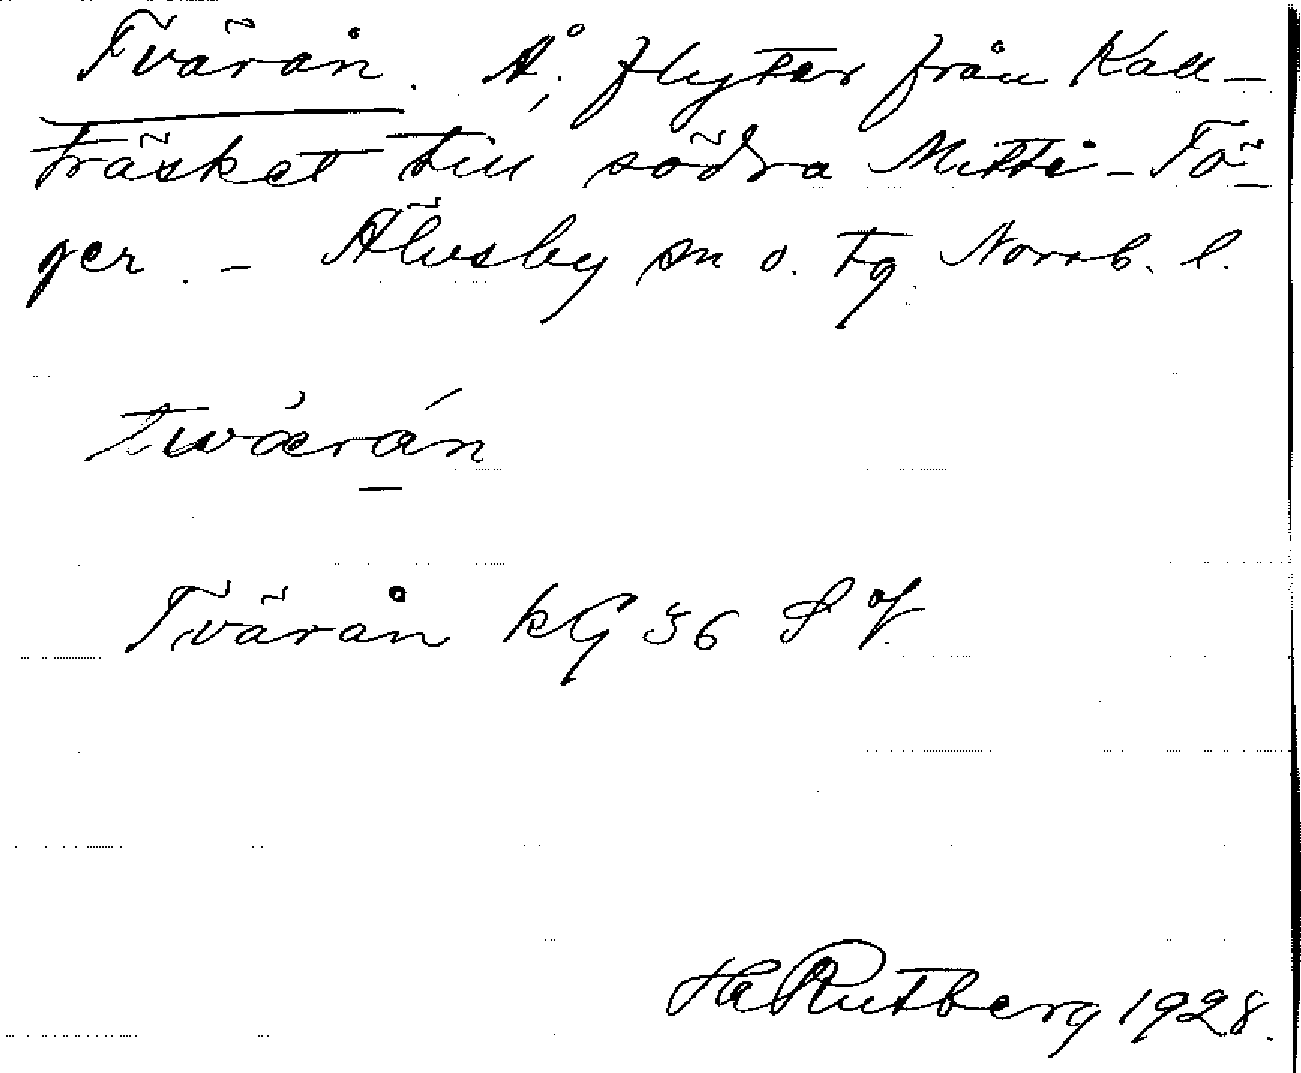 Tvärån. Å; flyter från Kall-
träsket till södra Mitti-Tö-
ger. - Älvsby sn o. tg Norrb. l.
twæ̀rán
Tvärån kG 36 S V.
Ha Rutberg 1928.